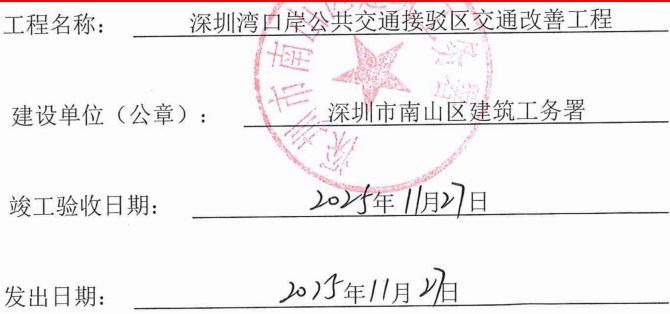 工程名称： 深圳湾口岸公共交通接驳区交通改善工程
建设单位（公章）： 深圳市南山区建筑工务署
竣工验收日期： 2025年11月27日
发出日期： 2025年11月27日